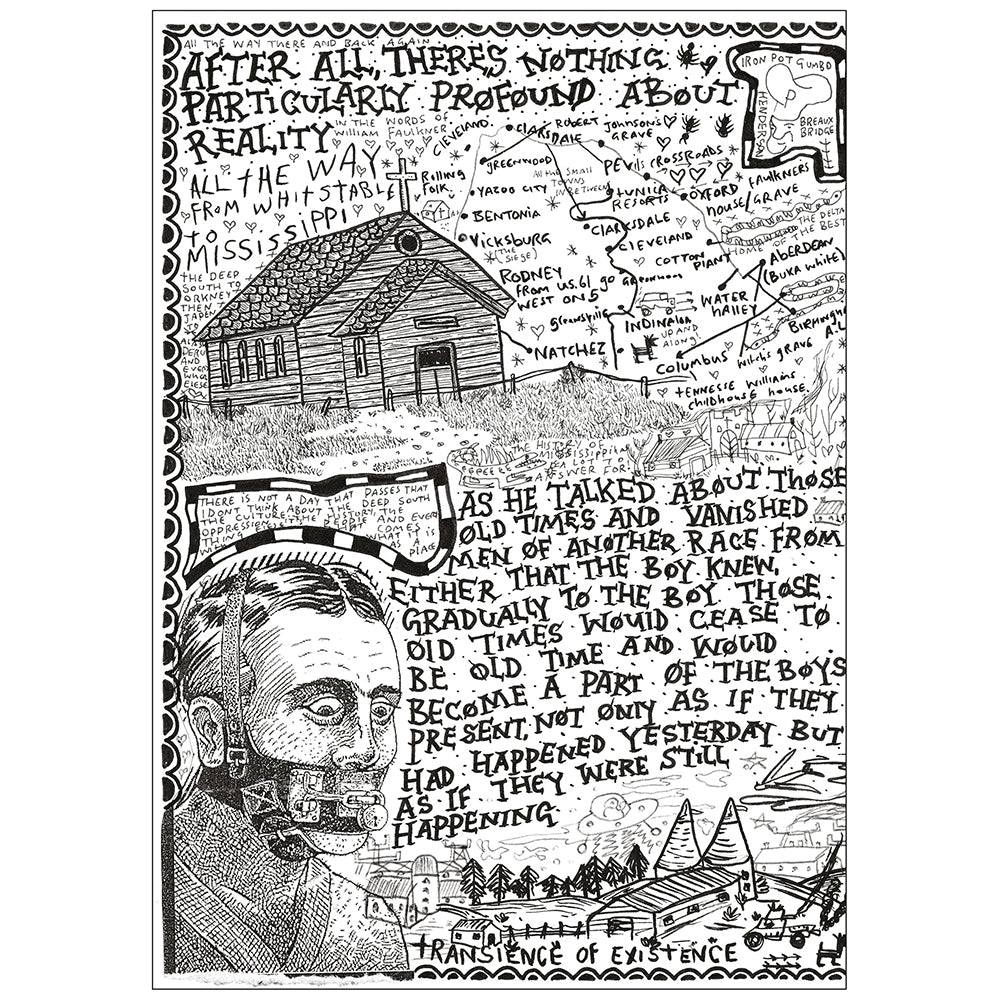 All THE WAY THERE AND BACK AGAIN
AFTER ALL, THERE'S NOTHING
PARTICULARLY PROFOUND ABOUT
REALITY
IN THE WORDS OF
WILLIAM FAULKNER
ALL THE WAY
FROM WHITSTABLE
TO
MISSISSIPPI
THE DEEP
SOUTH TO
ORKNEY
THEN T
IRON POT GUMBO
HENDERSON
BREAUX
BRIDGE
CLEVELAND
CLARKSDALE
ROBERT Johnson's
GRAVE
Rolling
Folk.
GREENWOOD
All THE SMALL
TOWNS
IN BETWEEN
DEVILS CROSSROADS
YAZOO CITY
tUNICA
RESORTS
OXFORD
FAULKNERS
HOUSE/GRAVE
BENTONIA
CLARKSDALE
THE DELTA
HOME OF THE BEST
Vicksburg
(THE
SIEGE)
CLEVELAND
COTTON
PLANT
ABERDEAN
(BUKA WHITE)
RODNEY
FROM US.61 go
WEST ON 5
WATER
VALLEY
greensville
INDINALOA
UP AND
ALONG!
BIRMINGHAM
A.L
NATCHEZ
COLUMBUS
Witch's GRAVE
tENNESSE WILLIAMS
childhouse house.
THE HISTORY OF
MISSISSIPPI
A LOT TO
ANSWER FOR.
THERE IS NOT A DAY THAT PASSES THAT
I DONT THINK ABOUT THE DEEP SOUTH
THE CULTURE, THE HISTORY, THE
OPPRESSION, THE PEOPLE AND EVERY
WHAT IT IS
AS A
PLACE
AS HE TALKED ABOUT THOSE
OLD TIMES AND VANISHED
MEN OF ANOTHER RACE FROM
EITHER THAT THE BOY KNEW,
GRADUALLY TO THE BOY THOSE
OLD TIMES WOULD CEASE TO
BE OLD TIME AND WOULD
BECOME A PART OF THE BOYS
PRESENT, NOT ONLY AS IF THEY
HAD HAPPENED YESTERDAY BUT
AS IF THEY WERE STILL
HAPPENING
tRANSIENCE OF EXISTENCE